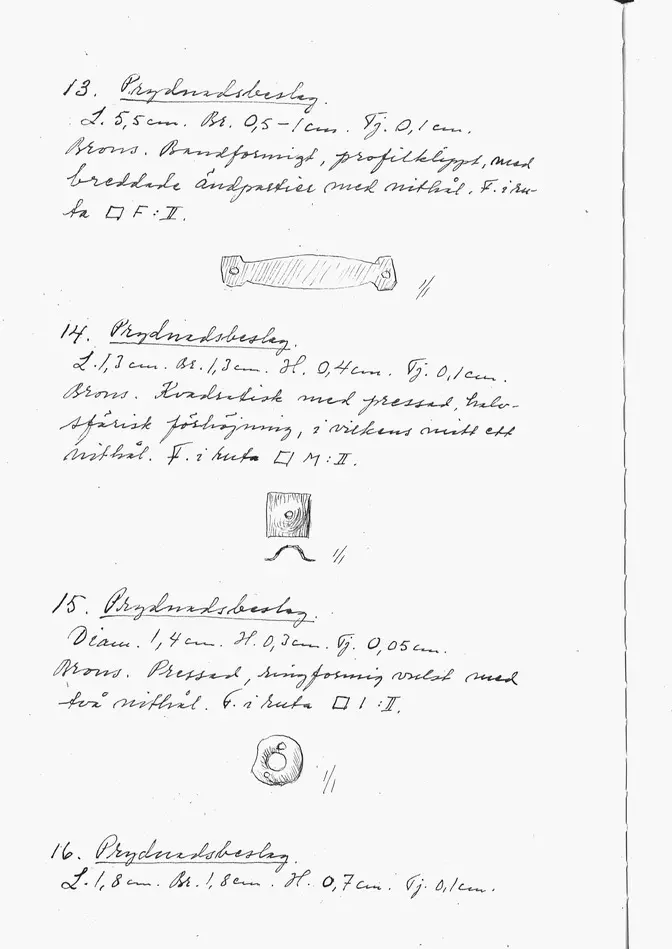 13. Prydnadsbeslag.
L. 5,5 cm. Br. 0,5–1 cm. Tj. 0,1 cm.
Brons. Bandformigt, profilklippt, med
breddade ändpartier med nithål. F. i ru-
ta □ F:II.
1/1
14. Prydnadsbeslag.
L. 1,3 cm. Br. 1,3 cm. H. 0,4 cm. Tj. 0,1 cm.
Brons. Kvadratisk med pressad, halv-
sfärisk förhöjning, i vilkens mitt ett
nithål. F. i ruta □ M:II.
1/1
15. Prydnadsbeslag.
Diam. 1,4 cm. H. 0,3 cm. Tj. 0,05 cm.
Brons. Pressad, ringformig vulst med
två nithål. F. i ruta □ I:II.
1/1
16. Prydnadsbeslag.
L. 1,8 cm. Br. 1,8 cm. H. 0,7 cm. Tj. 0,1 cm.